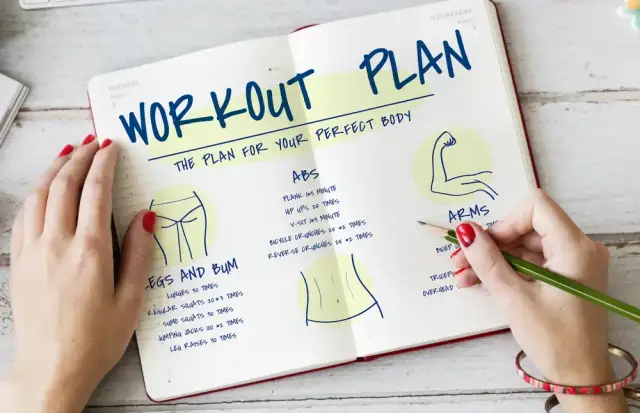 WORKOUT PLAN
THE PLAN FOR YOUR PERFECT BODY
ABS
HIP UPS 20 TIMES
BICYCLE CRUNCHES 20 *2 TIMES
REVERSE CRUNCHES 20 *2 TIMES
LEGS AND BUM
LUNGES 30 TIMES
REGULAR SQUATS 20*3 TIMES
SUMO SQUATS 30 TIMES
JUMPING JACKS 100 *2 TIMES
LEG RAISES 30 TIMES
ARMS
OVERHEAD